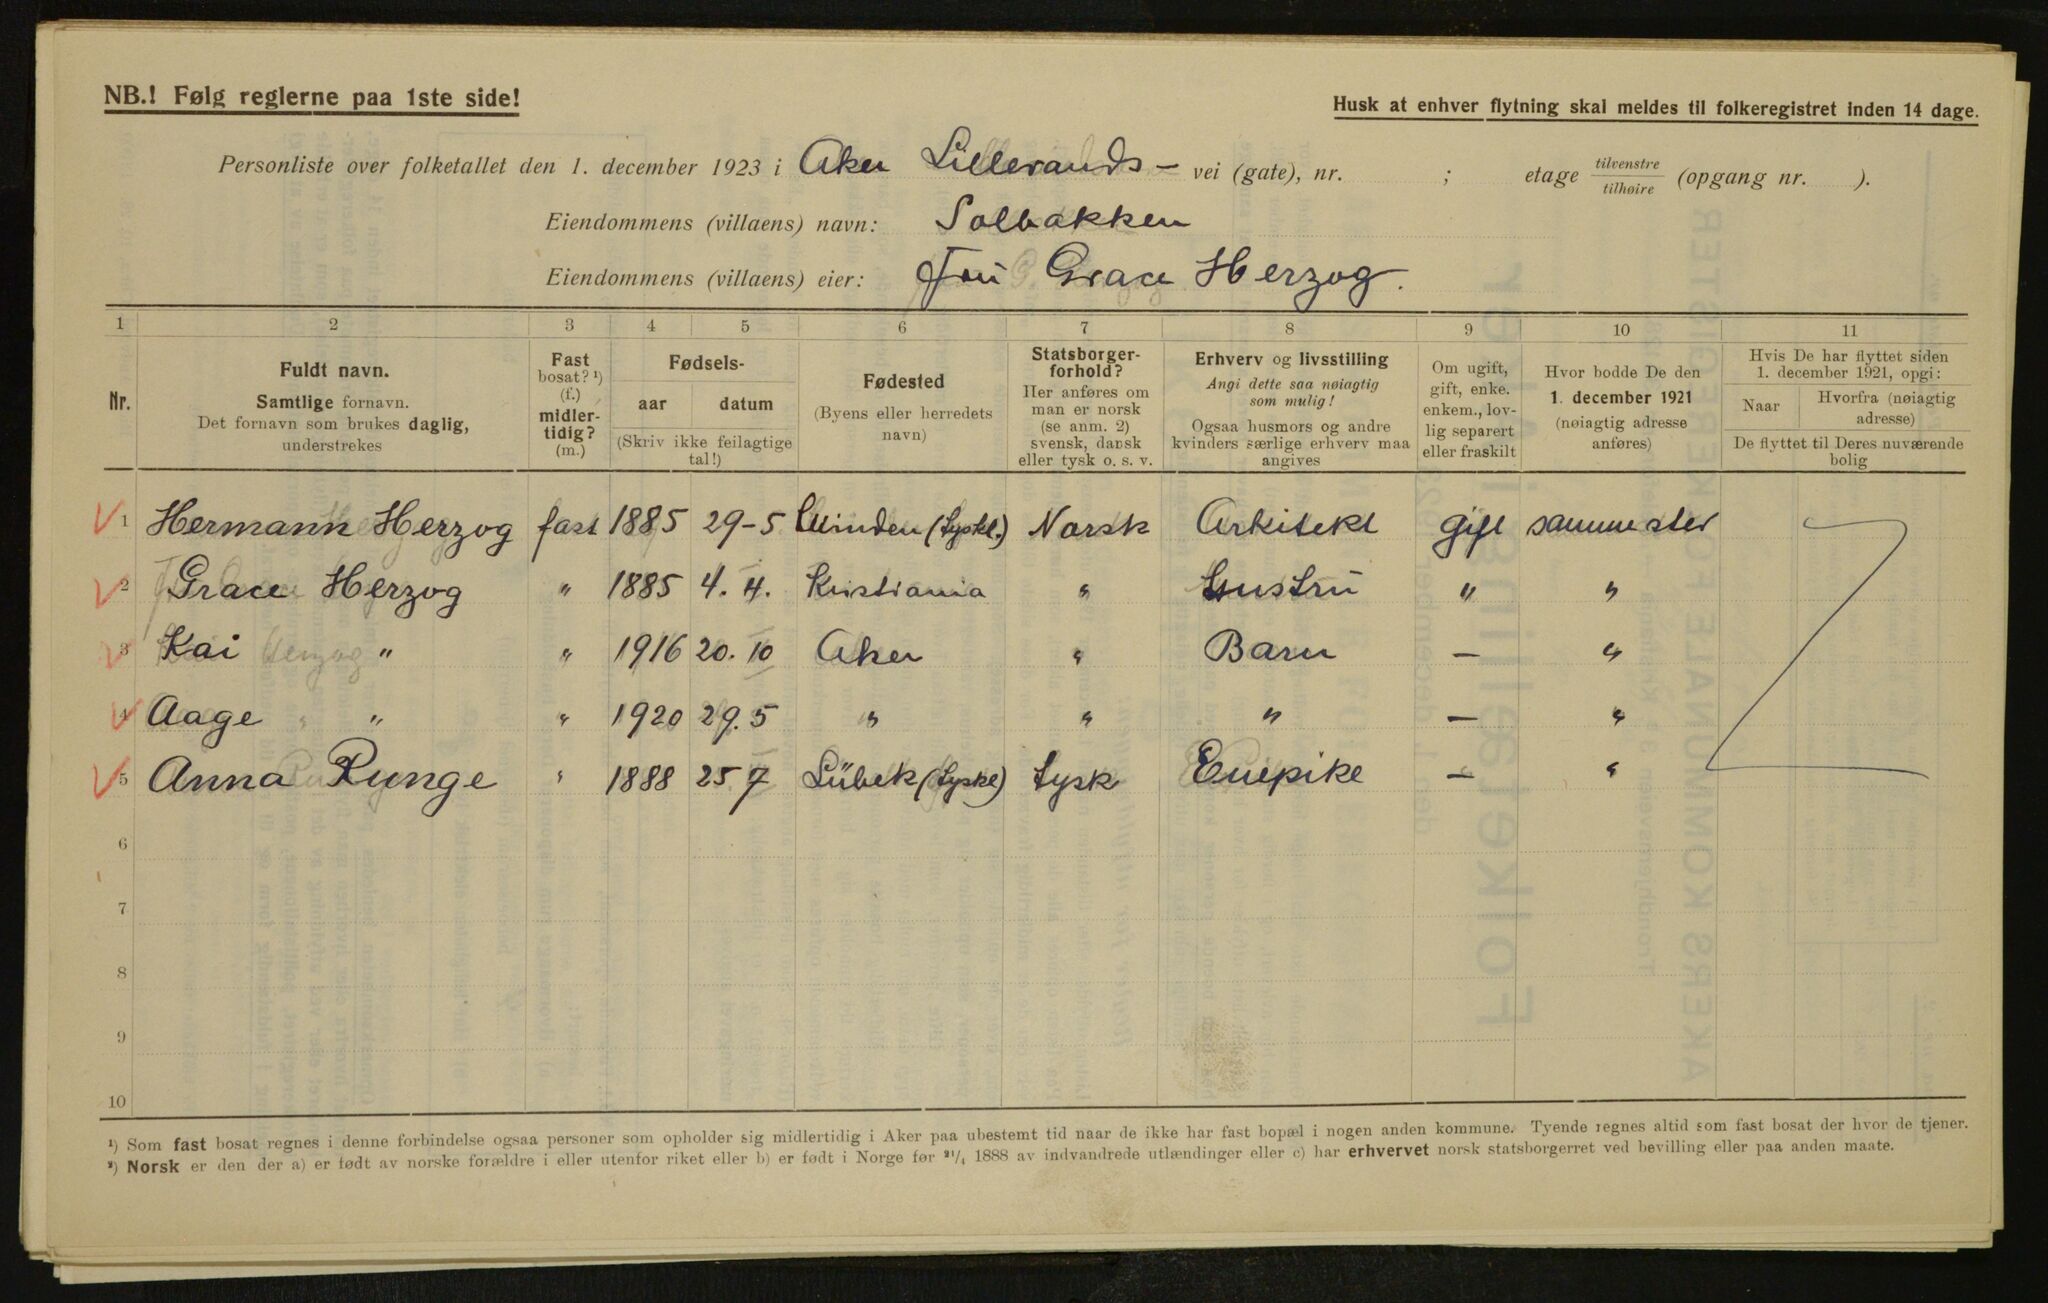 NB.! Følg reglerne paa 1ste side!
Husk at enhver flytning skal meldes til folkeregistret inden 14 dage.
Personliste over folketallet den 1. december 1923 i Aker Lillevands- vei (gate), nr. ; etage tilvenstre/tilhøire (opgang nr. ).
Eiendommens (villaens) navn: Solbakken
Eiendommens (villaens) eier: Fru Grace Herzog.
1 2 3 4 5 6 7 8 9 10 11
Nr.
Fuldt navn.
Samtlige fornavn.
Det fornavn som brukes daglig,
understrekes
Fast
bosat? ¹)
(f.)
midler-
tidig?
(m.)
Fødsels-
aar datum
(Skriv ikke feilagtige
tal!)
Fødested
(Byens eller herredets
navn)
Statsborger-
forhold?
Her anføres om
man er norsk
(se anm. 2)
svensk, dansk
eller tysk o. s. v.
Erhverv og livsstilling
Angi dette saa nøiagtig
som mulig!
Ogsaa husmors og andre
kvinders særlige erhverv maa
angives
Om ugift,
gift, enke.
enkem., lov-
lig separert
eller fraskilt
Hvor bodde De den
1. december 1921
(nøiagtig adresse
anføres)
Hvis De har flyttet siden
1. december 1921, opgi:
Naar
Hvorfra (nøiagtig
adresse)
De flyttet til Deres nuværende
bolig
1 Hermann Herzog fast 1885 29-5 Minden (Tyskl.) Norsk Arkitekt gift samme sted
2 Grace Herzog " 1885 4. 4. Kristiania " Hustru " "
3 Kai " " 1916 20. 10 Aker " Barn — "
4 Aage " " 1920 29. 5 " " " — "
5 Anna Runge " 1888 25 7 Lübek (Tyskl) Tysk Enepike — "
6
7
8
9
10
¹) Som fast bosat regnes i denne forbindelse ogsaa personer som opholder sig midlertidig i Aker paa ubestemt tid naar de ikke har fast bopæl i nogen anden kommune. Tyende regnes altid som fast bosat der hvor de tjener.
²) Norsk er den der a) er født av norske forældre i eller utenfor riket eller b) er født i Norge før ²¹/₄ 1888 av indvandrede utlændinger eller c) har erhvervet norsk statsborgerret ved bevilling eller paa anden maate.